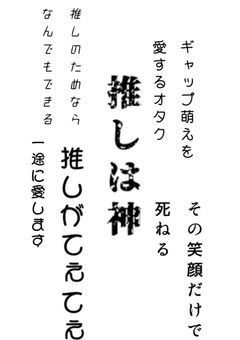 ギャップ萌えを
愛するオタク
その笑顔だけで
死ねる
推しは神
推しのためなら
なんでもできる
推しがてえてえ
一途に愛します